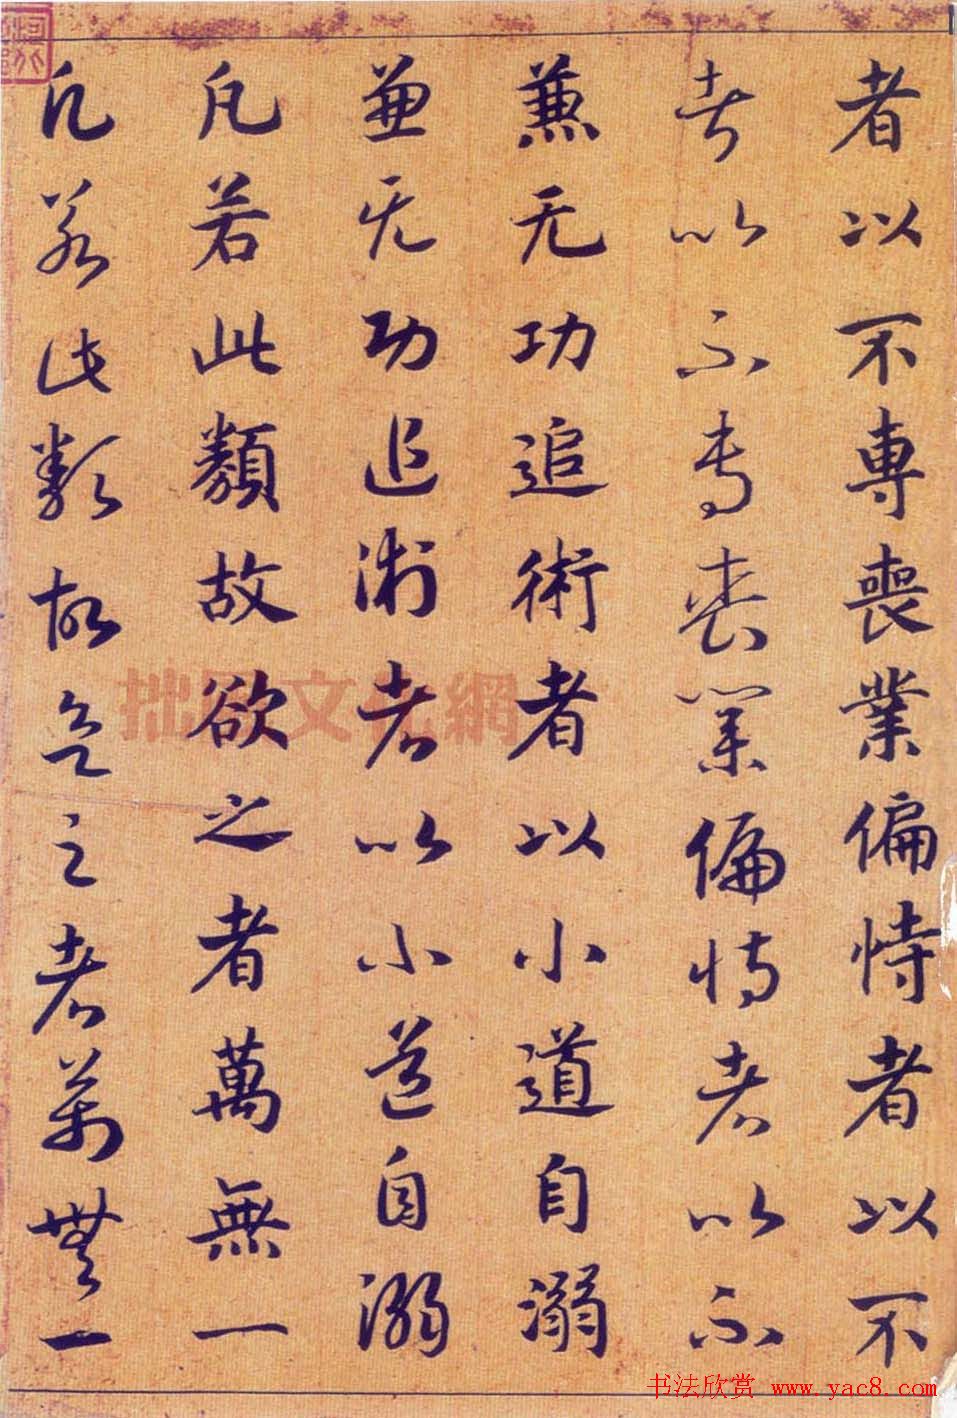 者以不專喪業偏恃者以不
者以不專喪業偏恃者以不
兼无功追術者以小道自溺
兼无功追術者以小道自溺
凡若此類故欲之者萬無一
凡若此類故欲之者萬無一
书法欣赏 www.yac8.com